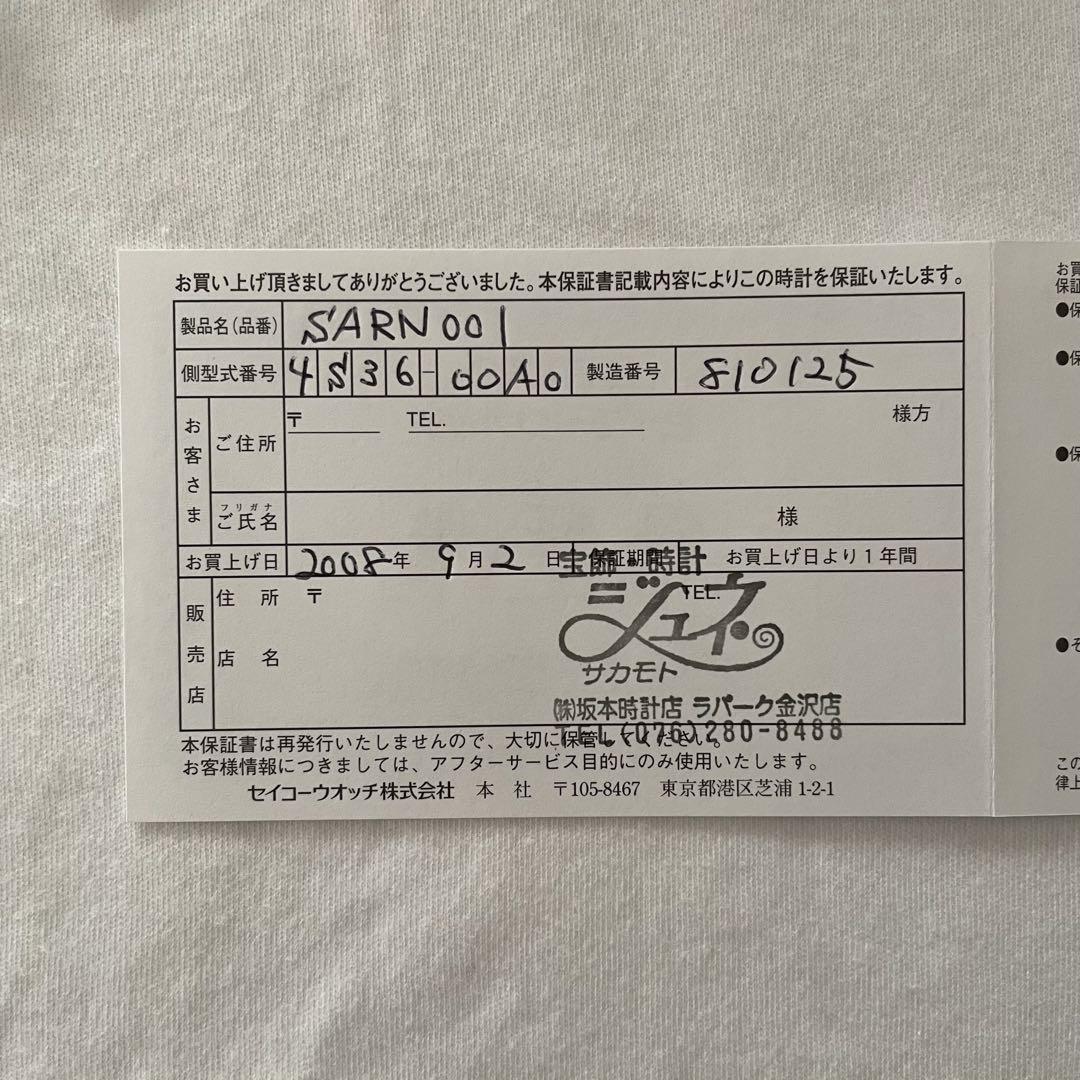 お買い上げ頂きましてありがとうございました。本保証書記載内容によりこの時計を保証いたします。
製品名(品番) SARN001
側型式番号 4S36-00A0 製造番号 810125
お客さま
ご住所 〒 TEL. 様方
フリガナ
ご氏名 様
お買上げ日 2008年 9月2日 保証期間 お買上げ日より1年間
宝飾・時計
販売店
住所 〒 TEL.
ジュネ
店名
サカモト
(株)坂本時計店 ラパーク金沢店
TEL(076)280-8488
本保証書は再発行いたしませんので、大切に保管してください。
お客様情報につきましては、アフターサービス目的にのみ使用いたします。
セイコーウオッチ株式会社 本社 〒105-8467 東京都港区芝浦1-2-1
お買
保証
●保
●保
●保
●そ
この
律上